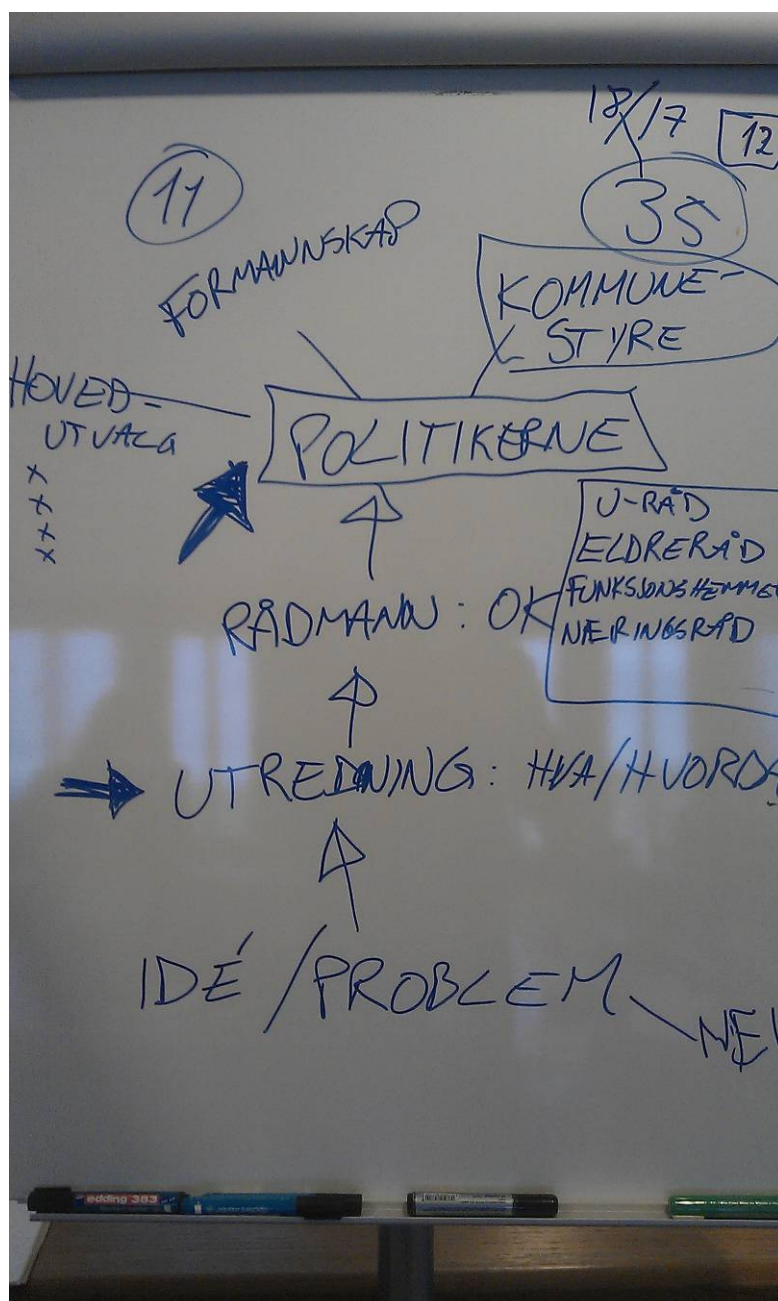 18/17
12
11
35
FORMANNSKAP
KOMMUNE-
STYRE
HOVED-
UTVALG
POLITIKERNE
U-RÅD
ELDRERÅD
FUNKSJONSHEMMED
NÆRINGSRÅD
RÅDMANN: OK
UTREDNING: HVA/HVORDA
IDÉ/PROBLEM
NEI
edding 383